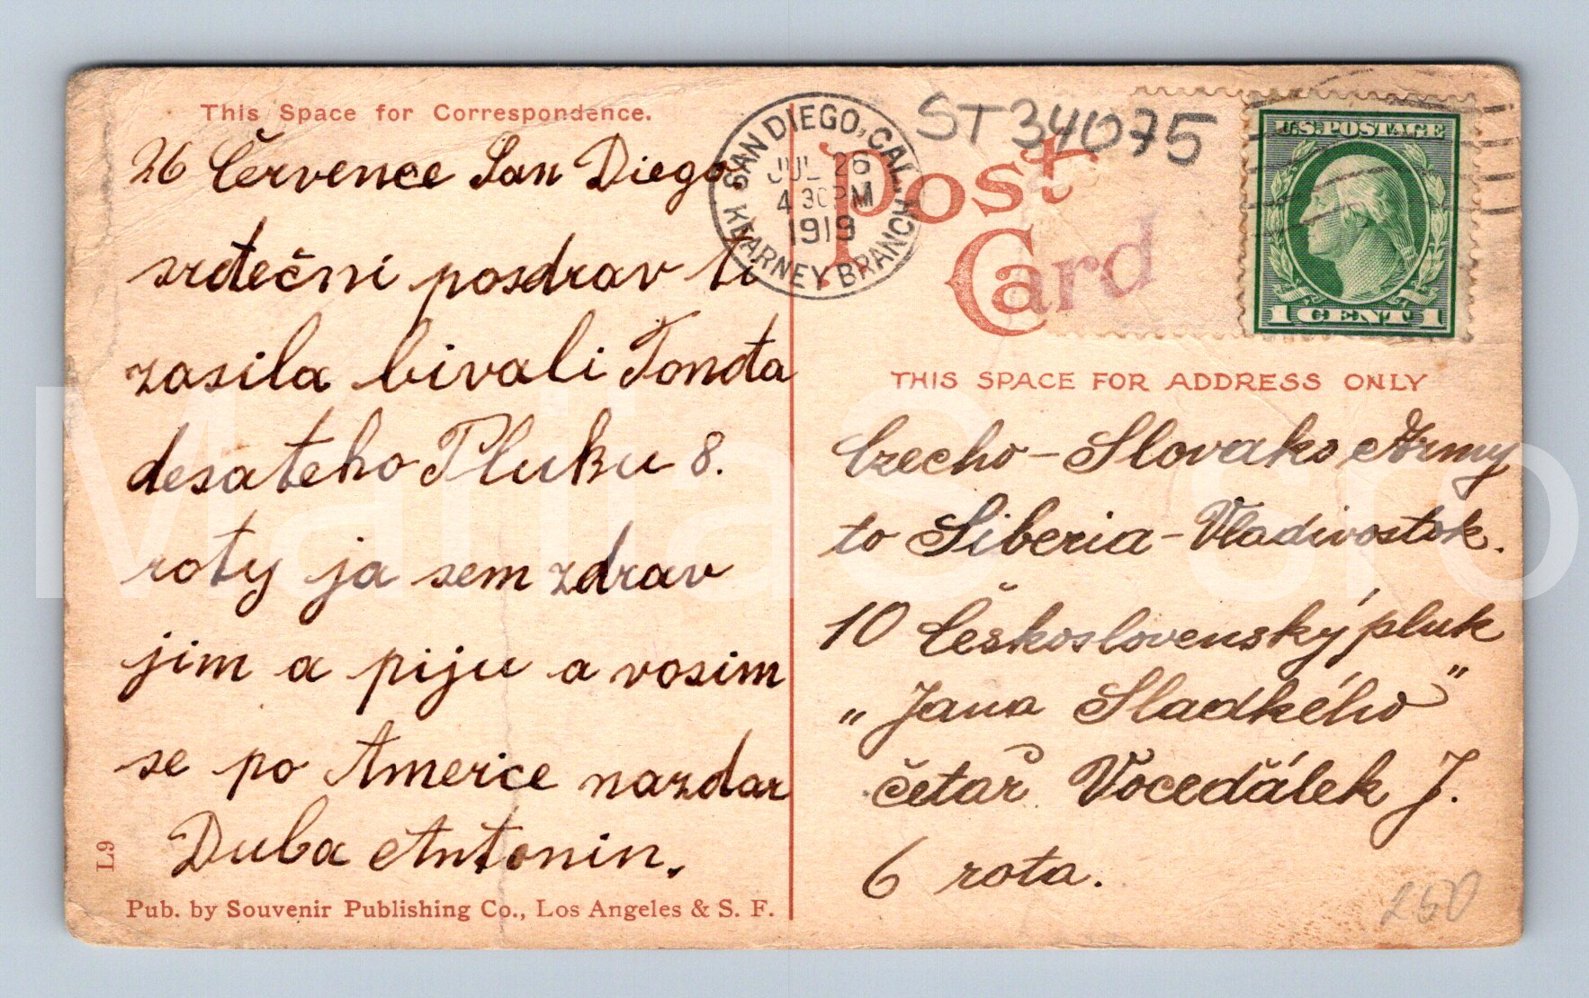 This Space for Correspondence.
26 Července San Diego
srdečni pozdrav ti
zasila bivali Tonda
desateho Pluku 8.
roty ja sem zdrav
jim a piju a vosim
se po Americe nazdar
Duba Antonin.
L9
Pub. by Souvenir Publishing Co., Los Angeles & S. F.
SAN DIEGO, CAL.
JUL 26
4 30 PM
1919
KEARNEY BRANCH
ST 34075
Post
Card
U.S. POSTAGE
1 CENT 1
THIS SPACE FOR ADDRESS ONLY
Czecho-Slovaks Army
to Siberia-Vladivostok.
10 Československý pluk
„Jana Sladkého"
četař Vocedálek J.
6 rota.
250